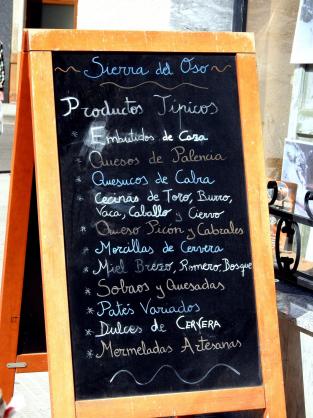 ~ Sierra del Oso ~
Productos Típicos
* Embutidos de Caza
* Quesos de Palencia
* Quesucos de Cabra
* Cecinas de Toro, Burro,
Vaca, Caballo y Ciervo
* Queso Picón y Cabrales
* Morcillas de Cervera
* Miel Brezo, Romero, Bosque
* Sobaos y Quesadas
* Patés Variados
* Dulces de CERVERA
* Mermeladas Artesanas